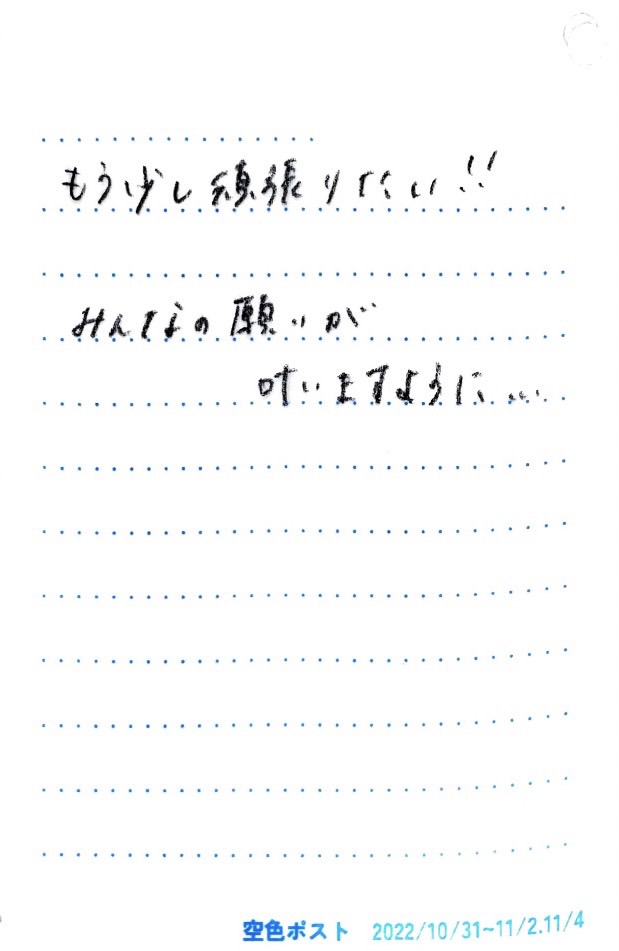 もう少し頑張りたい!!
みんなの願いが
叶いますように…
空色ポスト 2022/10/31~11/2.11/4